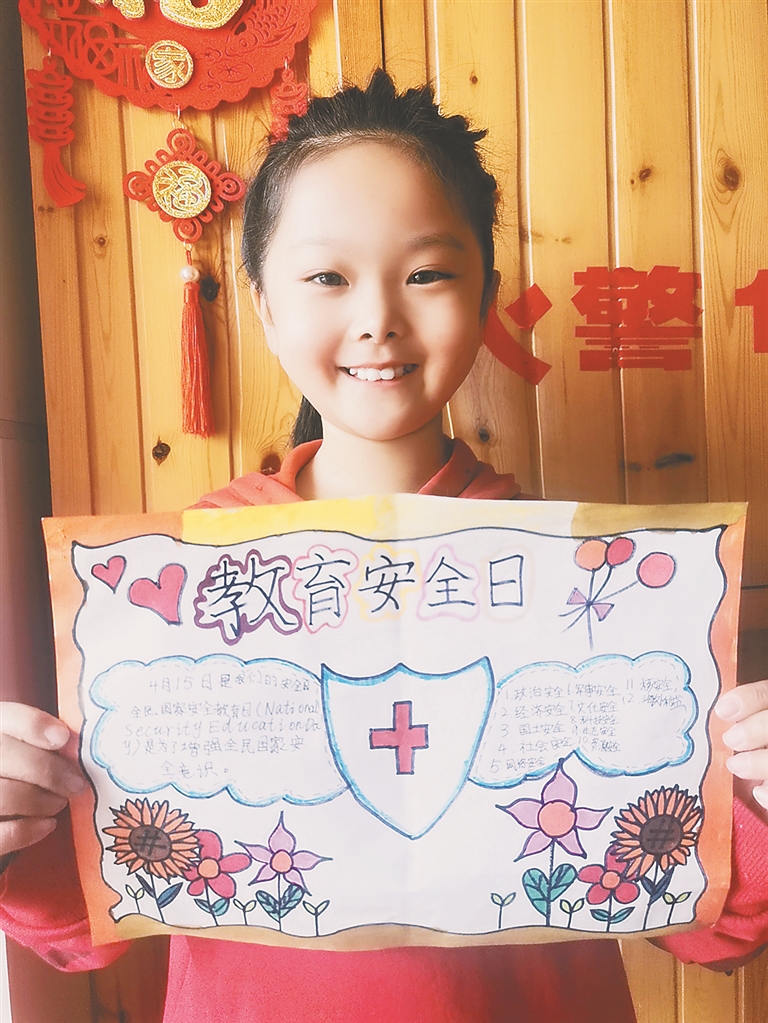 家
福
火警
教育安全日
4月15日是我们的安全日
全民、国家安全教育日(National
Security Education Da
y)是为了增强全民国家安
全意识。
1 政治安全 6 军事安全 11 核安全
2 经济安全 7 文化安全 12
3 国土安全 8 科技安全
4 社会安全 9 生态安全
5 网络安全 10 资源安全